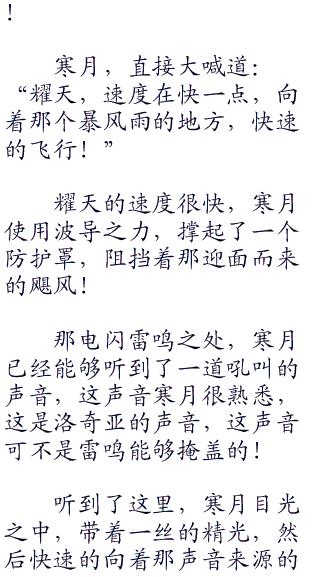 ！
寒月，直接大喊道：
“耀天，速度在快一点，向
着那个暴风雨的地方，快速
的飞行！”
耀天的速度很快，寒月
使用波导之力，撑起了一个
防护罩，阻挡着那迎面而来
的飓风！
那电闪雷鸣之处，寒月
已经能够听到了一道吼叫的
声音，这声音寒月很熟悉，
这是洛奇亚的声音，这声音
可不是雷鸣能够掩盖的！
听到了这里，寒月目光
之中，带着一丝的精光，然
后快速的向着那声音来源的